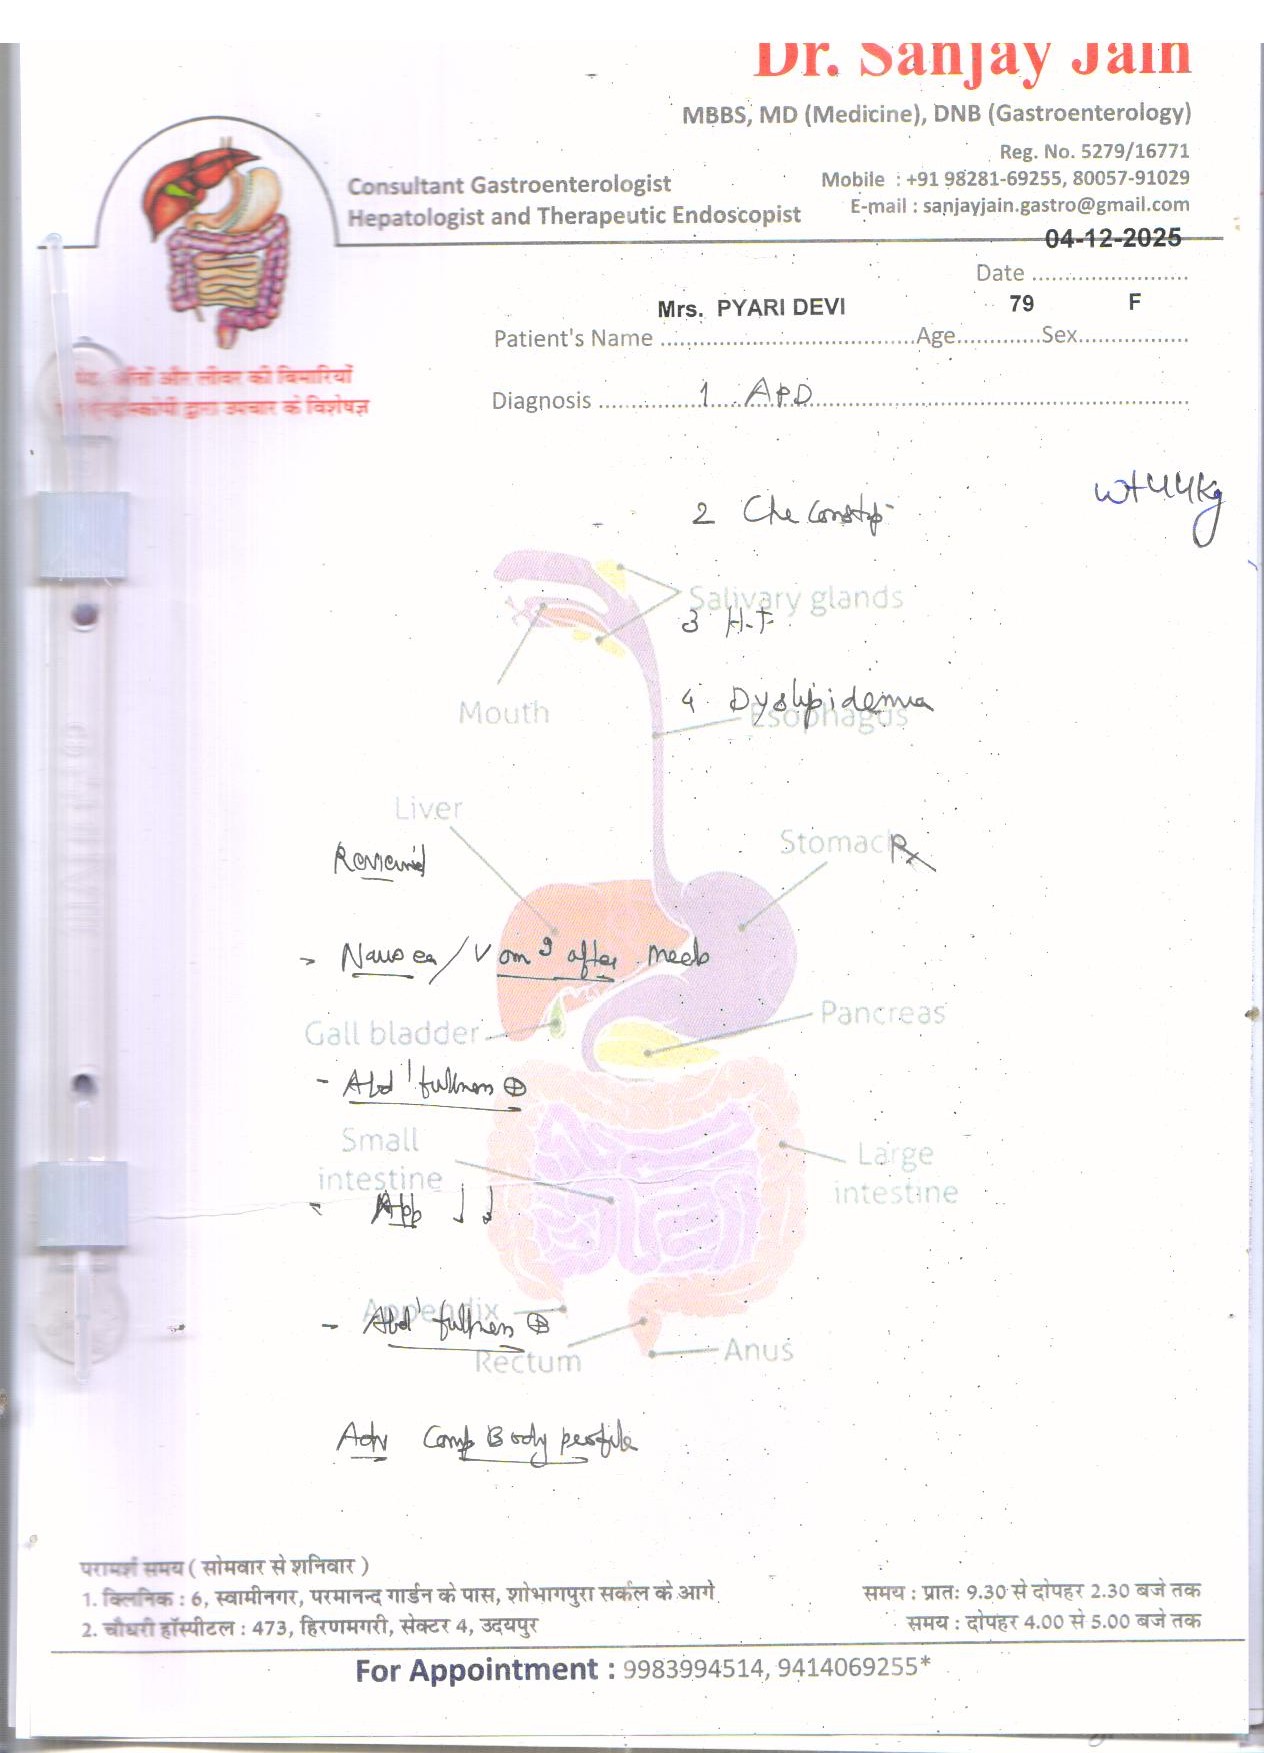 Dr. Sanjay Jain
MBBS, MD (Medicine), DNB (Gastroenterology)
Reg. No. 5279/16771
Consultant Gastroenterologist
Mobile : +91 98281-69255, 80057-91029
Hepatologist and Therapeutic Endoscopist
E-mail : sanjayjain.gastro@gmail.com
04-12-2025
Date
Mrs. PYARI DEVI 79 F
Patient's Name Age Sex
आँतों और लीवर की बिमारियाँ
द्वारा उपचार के विशेषज्ञ
Diagnosis 1 APD
wt 44kg
2 Chr Constip
Salivary glands
3 H.T.
Mouth
4. Dyslipidemia
Esophagus
Liver
Stomach Rx
Reviewed
- Nausea / Vomg after meals
Pancreas
Gall bladder
- Abd' fullness ⊕
Small intestine
Large intestine
- App ↓↓
Appendix
- Abd' fullness ⊕
Rectum
Anus
Adv Comp Body profile
परामर्श समय ( सोमवार से शनिवार )
1. क्लिनिक : 6, स्वामीनगर, परमानन्द गार्डन के पास, शोभागपुरा सर्कल के आगे समय : प्रातः 9.30 से दोपहर 2.30 बजे तक
2. चौधरी हॉस्पीटल : 473, हिरणमगरी, सेक्टर 4, उदयपुर समय : दोपहर 4.00 से 5.00 बजे तक
For Appointment : 9983994514, 9414069255*